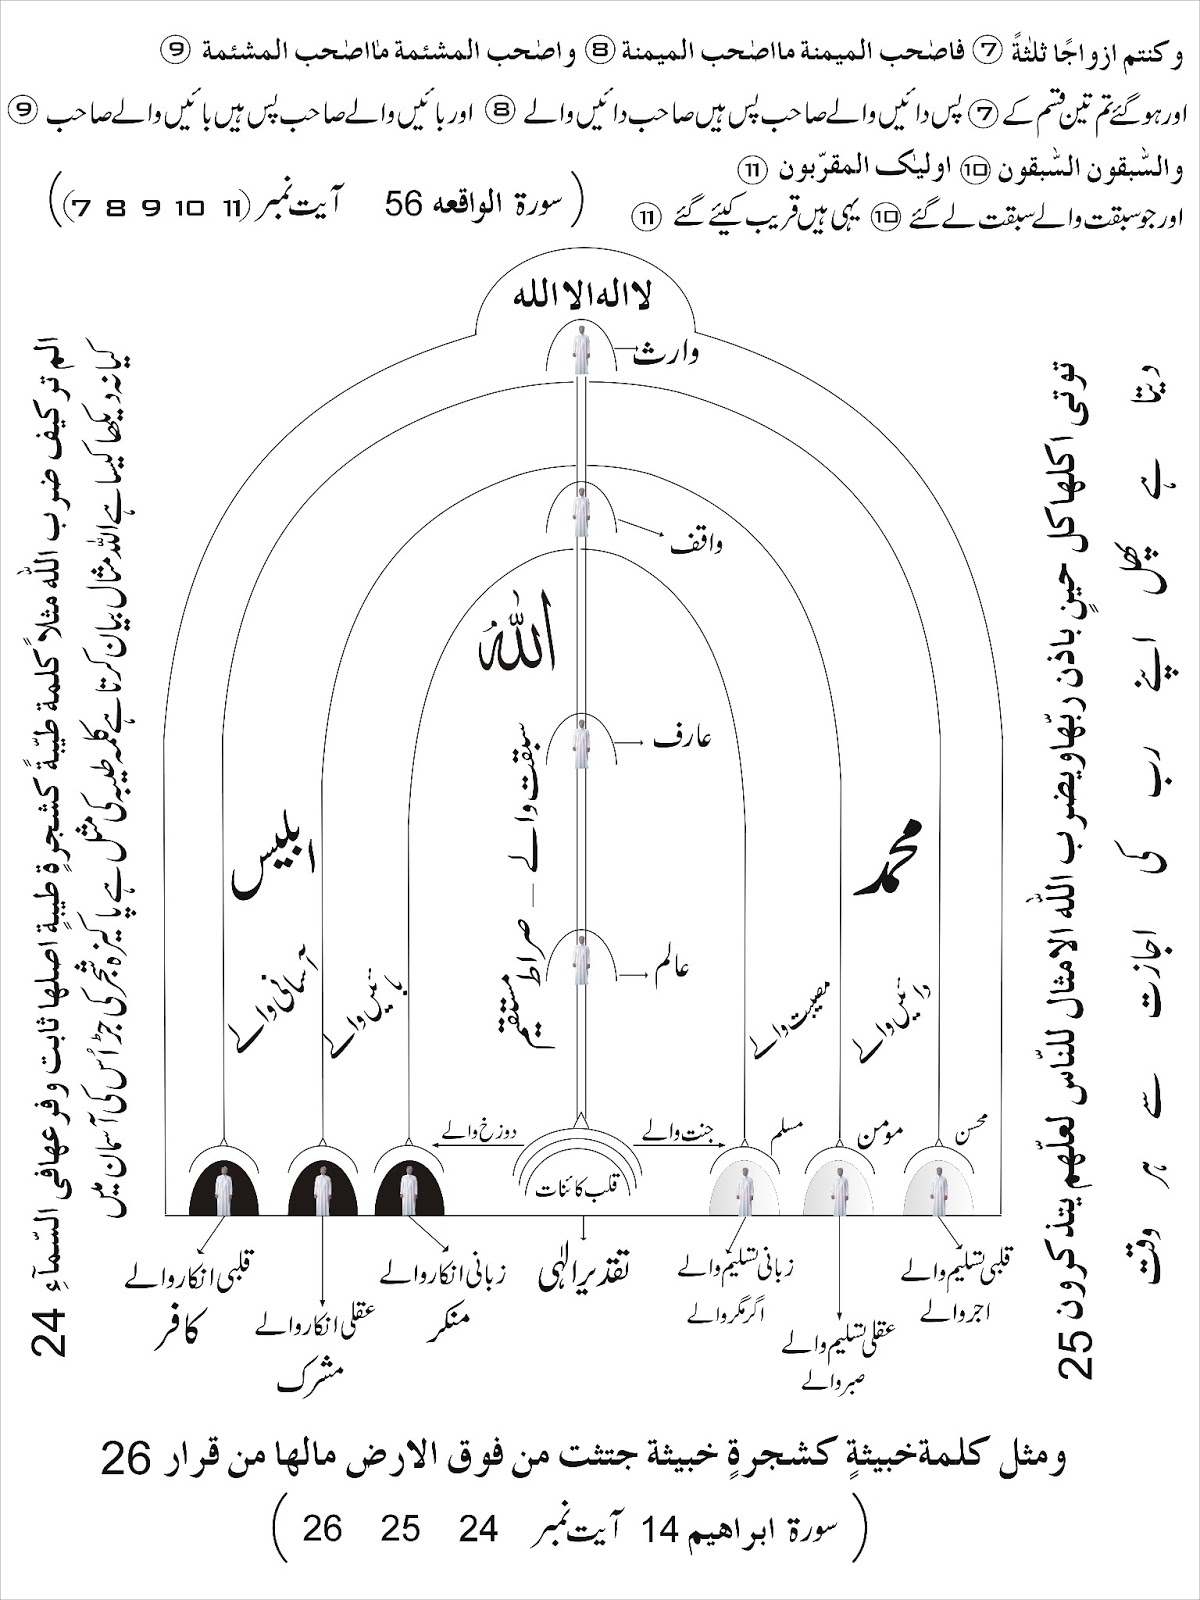 وكنتم ازواجًا ثلثةً ⑦ فاصٰحب الميمنة مااصٰحب الميمنة ⑧ واصٰحب المشئمة مااصٰحب المشئمة ⑨
اور ہو گئے تم تین قسم کے ⑦ پس دائیں والے صاحب پس ہیں صاحب دائیں والے ⑧ اور بائیں والے صاحب پس ہیں بائیں والے صاحب ⑨
والسّٰبقون السّٰبقون ⑩ اولیٰک المقرّبون ⑪
اور جو سبقت والے سبقت لے گئے ⑩ یہی ہیں قریب کیئے گئے ⑪
( سورۃ الواقعہ 56 آیت نمبر (11 10 9 8 7) )
لا اله الا الله
وارث
واقف
اللّٰہُ
عارف
سبقت والے — صراط مستقیم
عالم
ابلیس
محمد
آسانی والے
بائیں والے
مصیبت والے
دائیں والے
دوزخ والے
جنت والے
مسلم
مومن
محسن
قلب کائنات
قلبی انکار والے
کافر
عقلی انکار والے
مشرک
زبانی انکار والے
منکر
تقدیر الٰہی
زبانی تسلیم والے
اگر مگر والے
عقلی تسلیم والے
صبر والے
قلبی تسلیم والے
اجر والے
الم تر كيف ضرب اللّٰه مثلاً كلمة طيّبةً كشجرةٍ طيبةٍ اصلها ثابت و فرعهافی السّمآءِ 24
کیا نہ دیکھا کیسا ہے اللہ مثال بیان کرتا ہے کلمہ طیبہ کی مثل ہے پاکیزہ شجر کی جڑ اُس کی آسمان میں
توتی اكلها كل حينٍ باذن ربّها ويضرب اللّٰه الامثال للنّاس لعلّهم يتذكرون 25
دیتا ہے پھل اپنے رب کی اجازت سے ہر وقت
ومثل كلمة خبيثةٍ كشجرةٍ خبيثة جتثت من فوق الارض مالها من قرار 26
( سورۃ ابراھیم 14 آیت نمبر 24 25 26 )